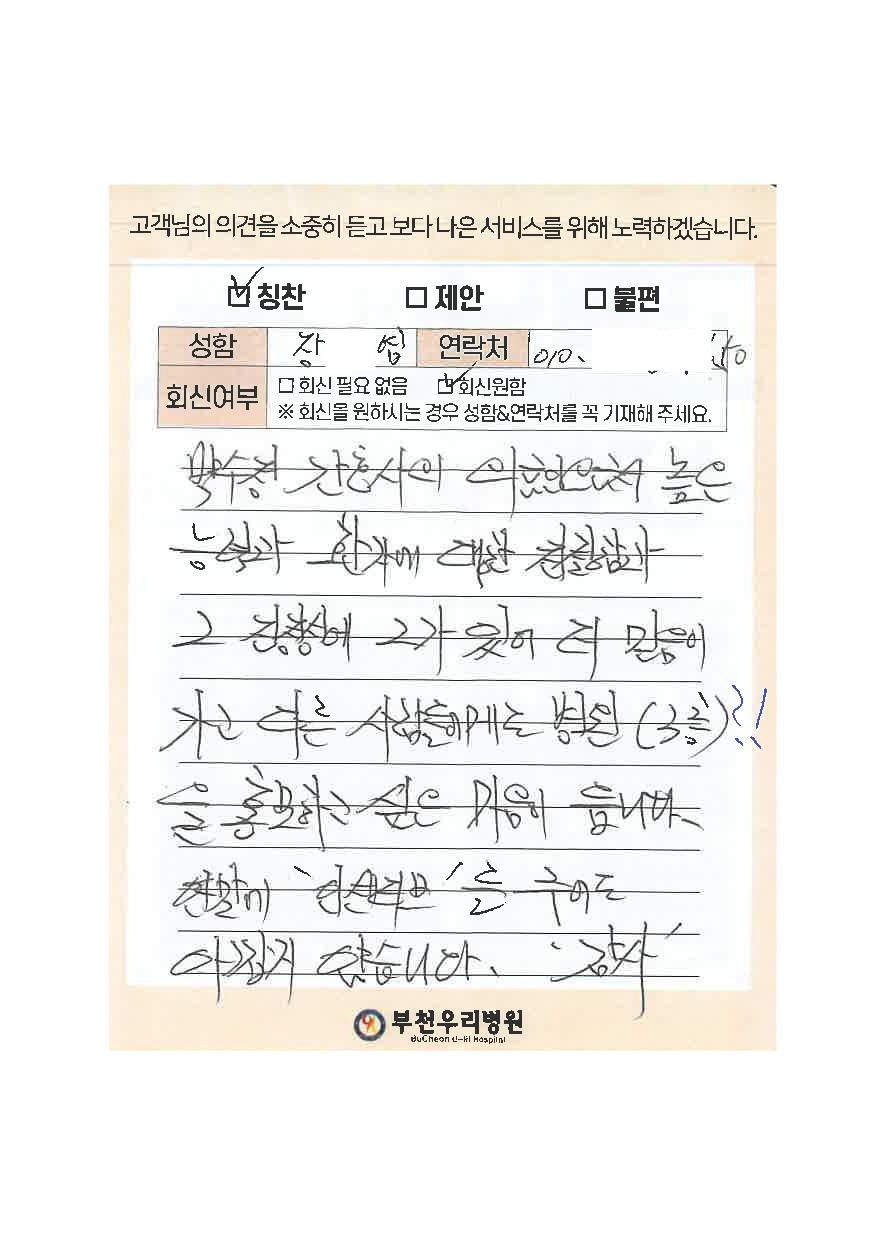 고객님의 의견을 소중히 듣고 보다 나은 서비스를 위해 노력하겠습니다.
칭찬 제안 불편
성함 장 심 연락처 010.
회신여부 회신 필요 없음 회신원함
※ 회신을 원하시는 경우 성함&연락처를 꼭 기재해 주세요.
박수정 간호사의 높은
능력과 환자에 대한 친절함과
그 가 있어 더 믿음이
가고 다른 사람들에게는 병원 (3층)
을 홍보하고 싶은 마음이 듭니다.
연말에 를 주어도
아깝지 않습니다. '감사'
부천우리병원
BuCheon U-RI Hospital